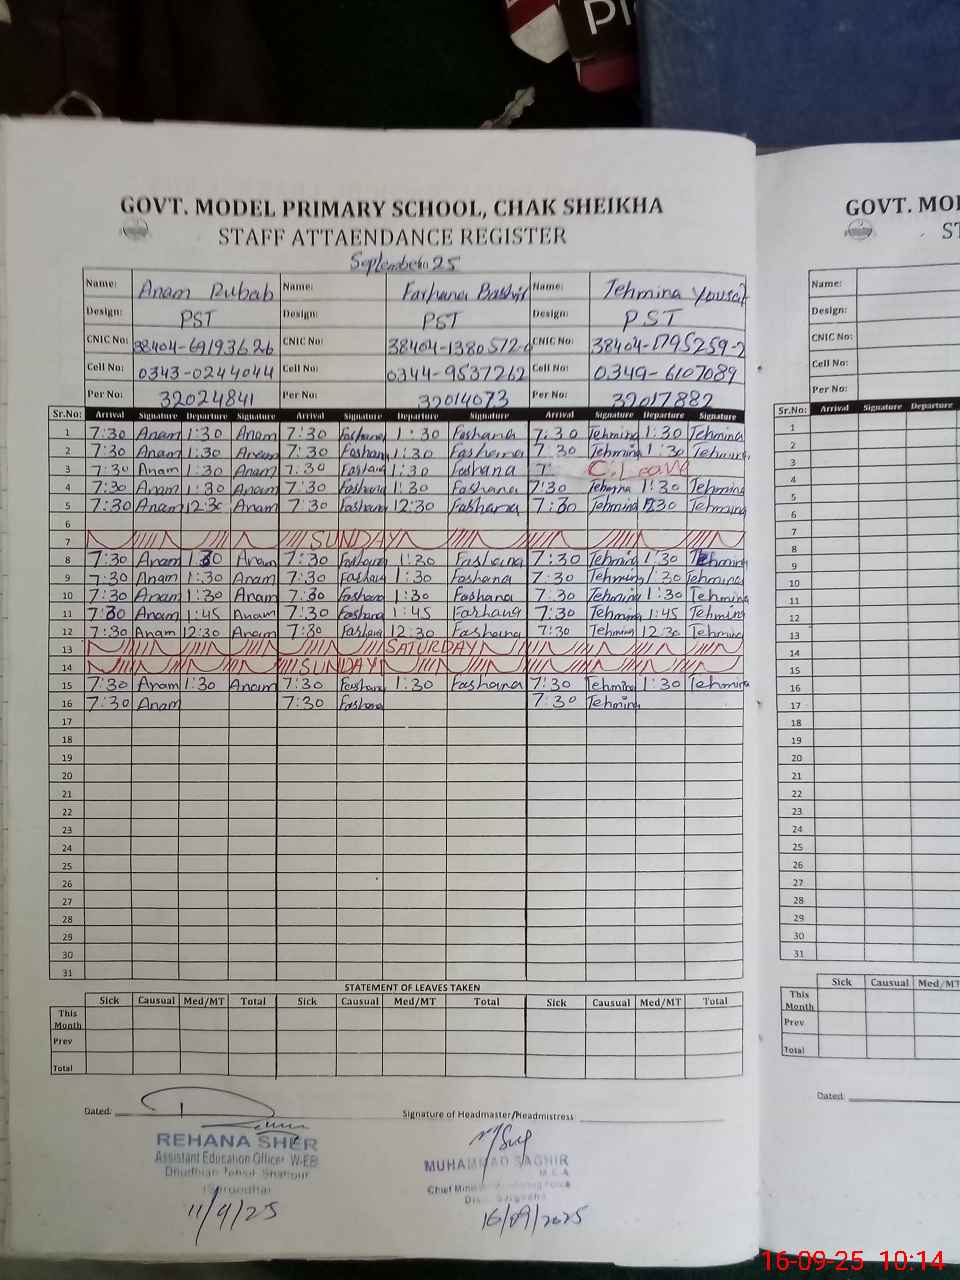 GOVT. MODEL PRIMARY SCHOOL, CHAK SHEIKHA
STAFF ATTAENDANCE REGISTER
September 25
Name: Anam Rubab Name: Farhana Bashir Name: Tehmina Yousaf
Design: PST Design: PST Design: PST
CNIC No: CNIC No: CNIC No:
Cell No: 0343-0244044 Cell No: 0344-9537262 Cell No: 0349-6107089
Per No: 32024841 Per No: 32014073 Per No: 32017882
Sr.No: Arrival Signature Departure Signature Arrival Signature Departure Signature Arrival Signature Departure Signature
1 7:30 Anam 1:30 Anam 7:30 Farhana 1:30 Farhana 7:30 Tehmina 1:30 Tehmina
2 7:30 Anam 1:30 Anam 7:30 Farhana 1:30 Farhana 7:30 Tehmina 1:30 Tehmina
3 7:30 Anam 1:30 Anam 7:30 Farhana 1:30 Farhana 7: C.Leave
4 7:30 Anam 1:30 Anam 7:30 Farhana 1:30 Farhana 7:30 Tehmina 1:30 Tehmina
5 7:30 Anam 12:30 Anam 7:30 Farhana 12:30 Farhana 7:30 Tehmina 12:30 Tehmina
6
7 SUNDAY
8 7:30 Anam 1:30 Anam 7:30 Farhana 1:30 Farhana 7:30 Tehmina 1:30 Tehmina
9 7:30 Anam 1:30 Anam 7:30 Farhana 1:30 Farhana 7:30 Tehmina 1:30 Tehmina
10 7:30 Anam 1:30 Anam 7:30 Farhana 1:30 Farhana 7:30 Tehmina 1:30 Tehmina
11 7:30 Anam 1:45 Anam 7:30 Farhana 1:45 Farhana 7:30 Tehmina 1:45 Tehmina
12 7:30 Anam 12:30 Anam 7:30 Farhana 12:30 Farhana 7:30 Tehmina 12:30 Tehmina
13 SATURDAY
14 SUNDAY
15 7:30 Anam 1:30 Anam 7:30 Farhana 1:30 Farhana 7:30 Tehmina 1:30 Tehmina
16 7:30 Anam 7:30 Farhana 7:30 Tehmina
17
18
19
20
21
22
23
24
25
26
27
28
29
30
31
STATEMENT OF LEAVES TAKEN
Sick Causual Med/MT Total Sick Causual Med/MT Total Sick Causual Med/MT Total
This Month
Prev
Total
Dated: Signature of Headmaster/Headmistress
REHANA SHER
Assistant Education Officer W-EB
11/9/25
MUHAMMAD SAGHIR
M.E.A
16/09/2025
GOVT. MO
ST
Name:
Design:
CNIC No:
Cell No:
Per No:
Sr.No: Arrival Signature Departure
1
2
3
4
5
6
7
8
9
10
11
12
13
14
15
16
17
18
19
20
21
22
23
24
25
26
27
28
29
30
31
Sick Causual Med/MT
This Month
Prev
Total
Dated:
16-09-25 10:14